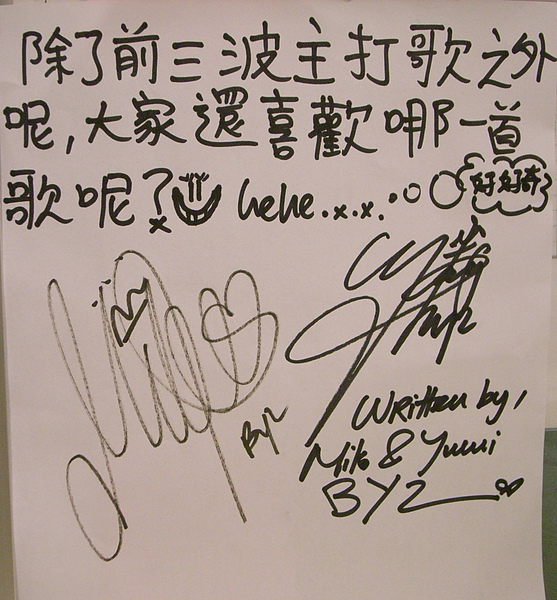 除了前三波主打歌之外
呢，大家還喜歡哪一首
歌呢? hehe..x.x.
好好奇
By2
By2
Written by,
Miko & Yumi
BY2